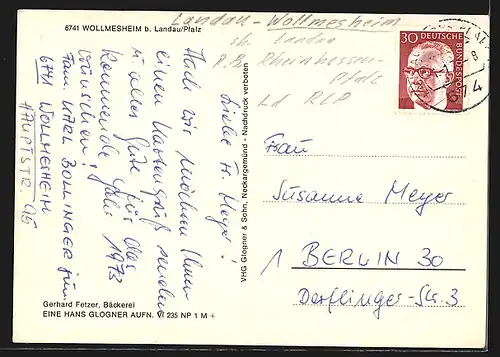 6741 WOLLMESHEIM b. Landau/Pfalz
Landau-Wollmesheim
sh. Landau
R.B. Rheinhessen-
Pfalz
Ld RLP
30 DEUTSCHE BUNDESPOST
8
674
Liebe Fr. Meyer!
Auch wir möchten Ihnen
einen Kartengruß senden
u. alles Gute für das
kommende Jahr 1973
wünschen!
Fam. KARL BOLLINGER jun.
6741 WOLLMESHEIM
HAUPTSTR. 95
VHG Glogner & Sohn, Neckargemünd - Nachdruck verboten
Frau
Susanne Meyer
1 BERLIN 30
Derflinger-Str. 3
Gerhard Fetzer, Bäckerei
EINE HANS GLOGNER AUFN. VI 235 NP 1 M +